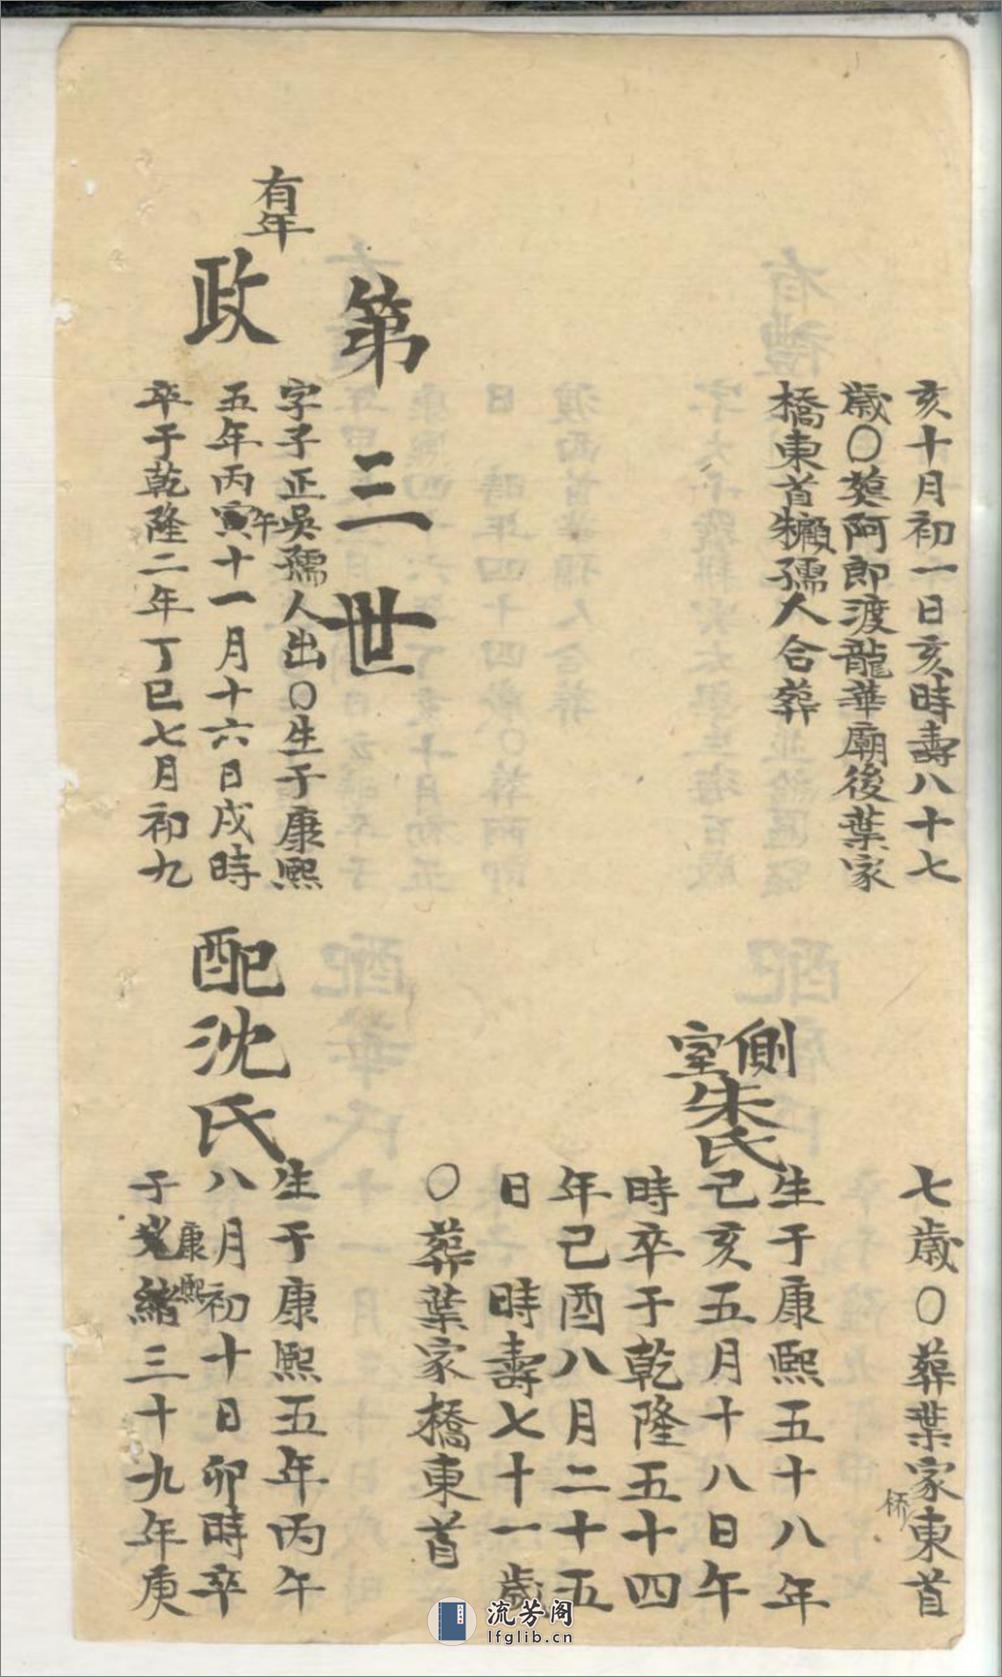 亥十月初一日亥時壽八十七
歲〇葬阿郎渡龍華廟後葉家
橋東首獺孺人合葬
七歲〇葬葉家東首
桥
側室朱氏
生于康熙五十八年
己亥五月十八日午
時卒于乾隆五十四
年己酉八月二十五
日 時壽七十一歲
〇葬葉家橋東首
第三世
有年
政
字子正吳孺人出〇生于康熙
五年丙寅十一月十六日戌時
午
卒于乾隆二年丁巳七月初九
配沈氏
生于康熙五年丙午
八月初十日卯時卒
康熙
于光緒三十九年庚
流芳阁
lfglib.cn